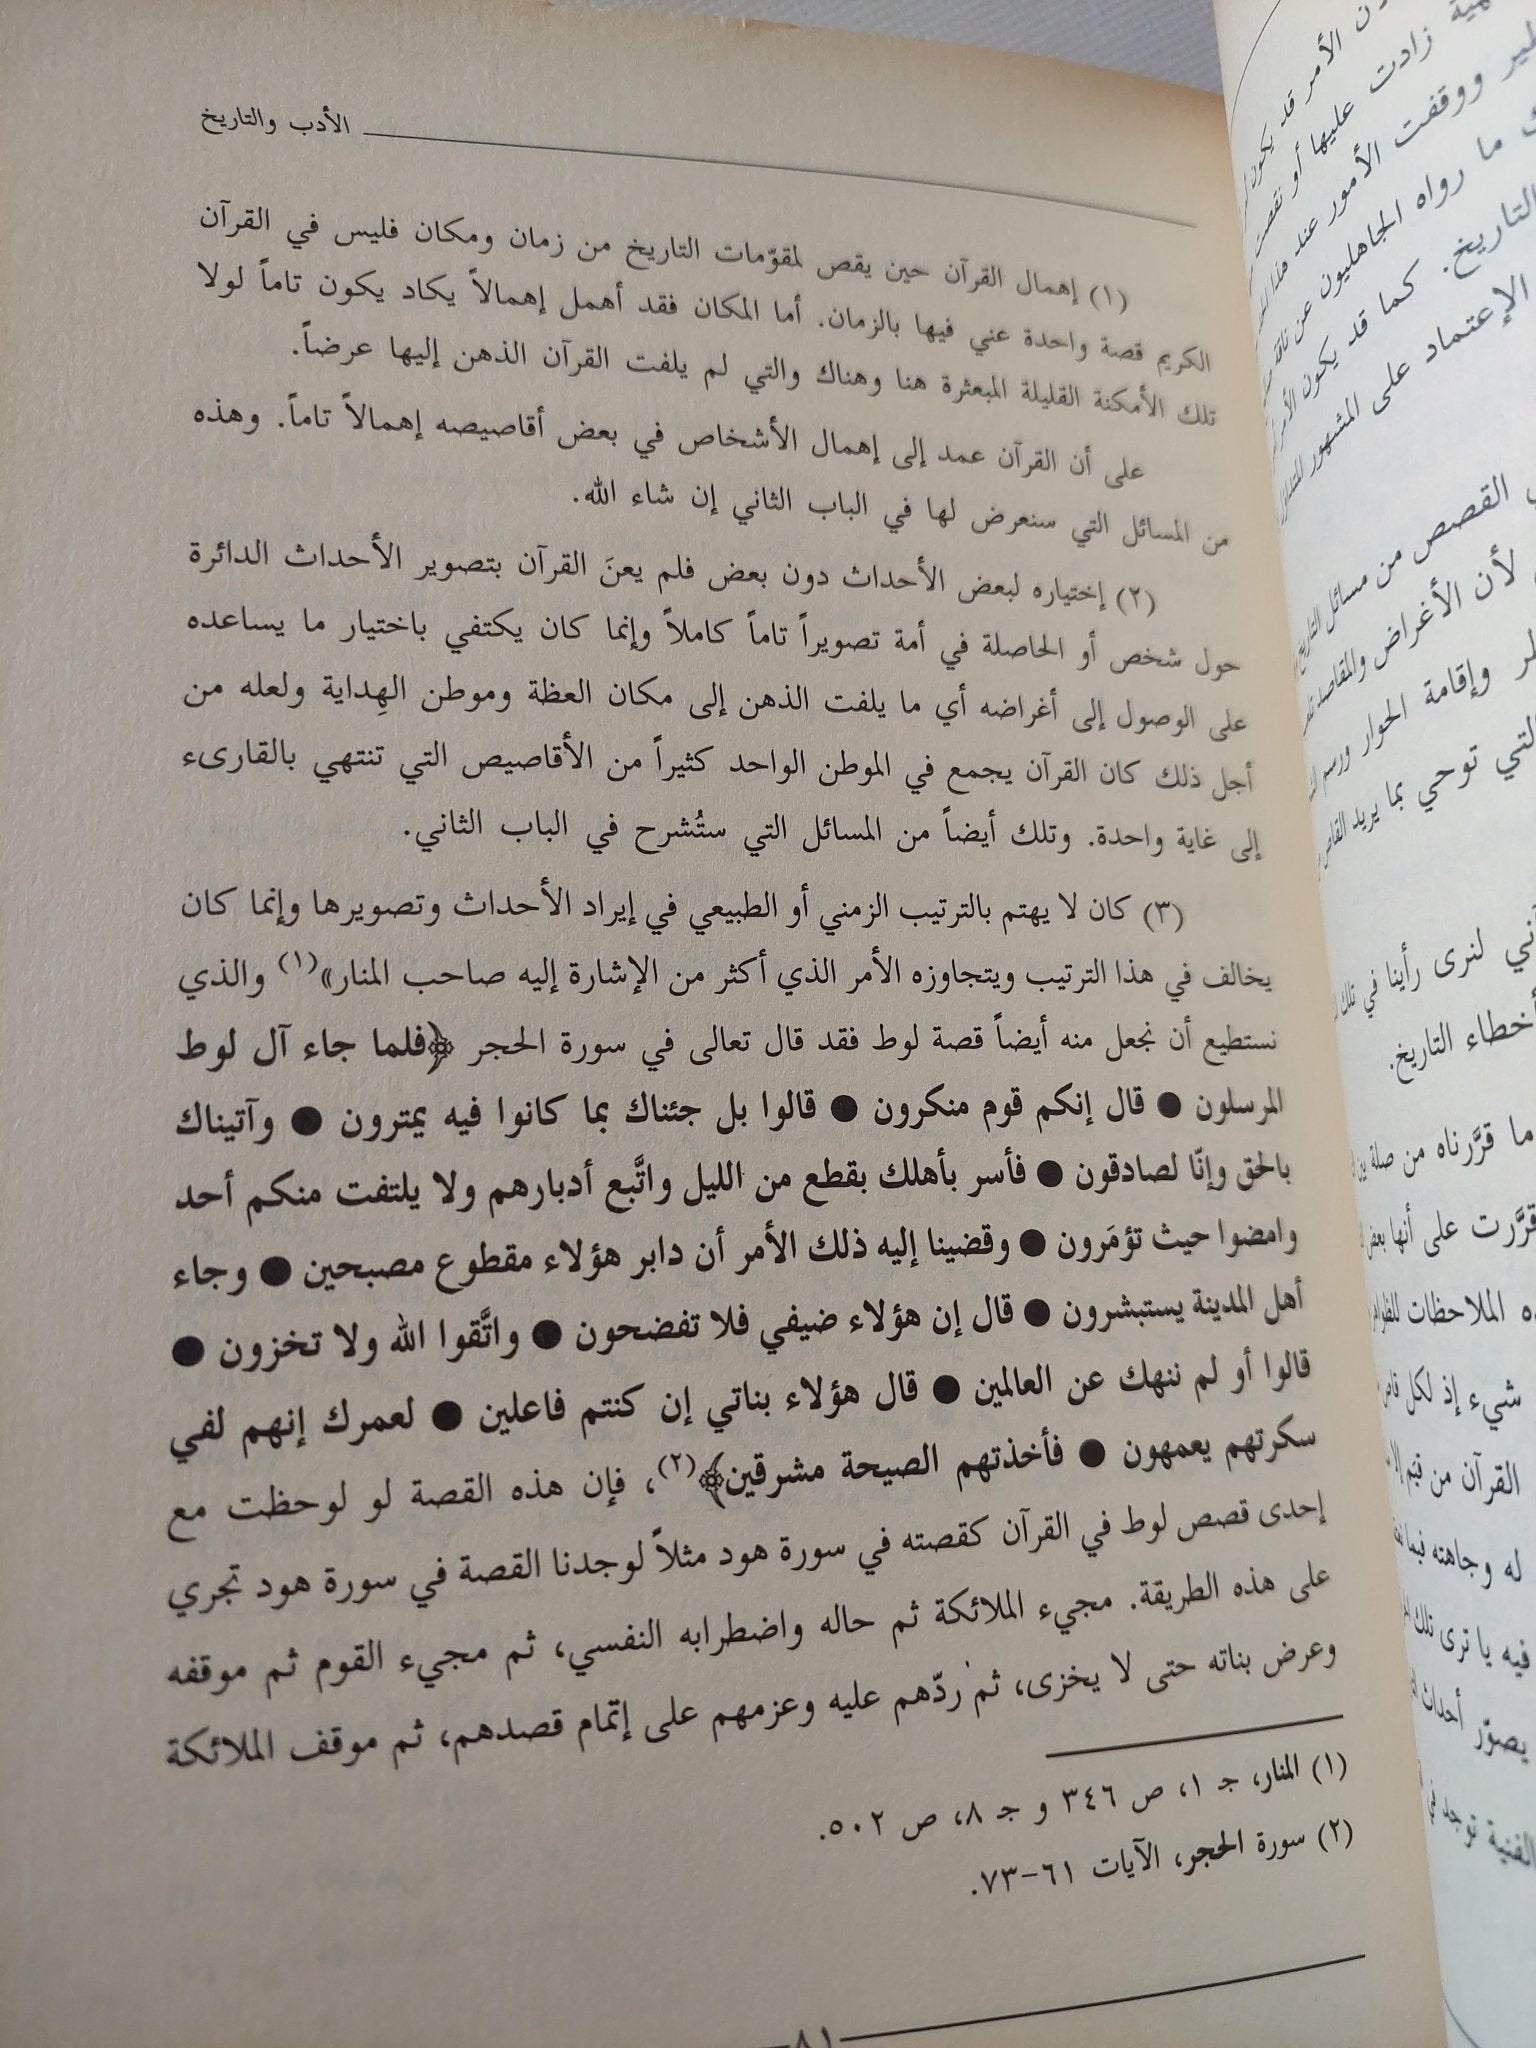 الأدب والتاريخ
(١) إهمال القرآن حين يقص لمقوّمات التاريخ من زمان ومكان فليس في القرآن
الكريم قصة واحدة عني فيها بالزمان. أما المكان فقد أهمل إهمالاً يكاد يكون تاماً لولا
تلك الأمكنة القليلة المبعثرة هنا وهناك والتي لم يلفت القرآن الذهن إليها عرضاً.
على أن القرآن عمد إلى إهمال الأشخاص في بعض أقاصيصه إهمالاً تاماً. وهذه
من المسائل التي سنعرض لها في الباب الثاني إن شاء الله.
(٢) إختياره لبعض الأحداث دون بعض فلم يعنَ القرآن بتصوير الأحداث الدائرة
حول شخص أو الحاصلة في أمة تصويراً تاماً كاملاً وإنما كان يكتفي باختيار ما يساعده
على الوصول إلى أغراضه أي ما يلفت الذهن إلى مكان العظة وموطن الهِداية ولعله من
أجل ذلك كان القرآن يجمع في الموطن الواحد كثيراً من الأقاصيص التي تنتهي بالقارىء
إلى غاية واحدة. وتلك أيضاً من المسائل التي ستُشرح في الباب الثاني.
(٣) كان لا يهتم بالترتيب الزمني أو الطبيعي في إيراد الأحداث وتصويرها وإنما كان
يخالف في هذا الترتيب ويتجاوزه الأمر الذي أكثر من الإشارة إليه صاحب المنار»(١) والذي
نستطيع أن نجعل منه أيضاً قصة لوط فقد قال تعالى في سورة الحجر ﴿فلما جاء آل لوط
المرسلون ● قال إنكم قوم منكرون ● قالوا بل جئناك بما كانوا فيه يمترون ● وآتيناك
بالحق وإنّا لصادقون ● فأسر بأهلك بقطع من الليل واتَّبع أدبارهم ولا يلتفت منكم أحد
وامضوا حيث تؤمَرون ● وقضينا إليه ذلك الأمر أن دابر هؤلاء مقطوع مصبحين ● وجاء
أهل المدينة يستبشرون ● قال إن هؤلاء ضيفي فلا تفضحون ● واتَّقوا الله ولا تخزون ●
قالوا أو لم ننهك عن العالمين ● قال هؤلاء بناتي إن كنتم فاعلين ● لعمرك إنهم لفي
سكرتهم يعمهون ● فأخذتهم الصيحة مشرقين﴾(٢)، فإن هذه القصة لو لوحظت مع
إحدى قصص لوط في القرآن كقصته في سورة هود مثلاً لوجدنا القصة في سورة هود تجري
على هذه الطريقة. مجيء الملائكة ثم حاله واضطرابه النفسي، ثم مجيء القوم ثم موقفه
وعرض بناته حتى لا يخزى، ثم ردّهم عليه وعزمهم على إتمام قصدهم، ثم موقف الملائكة
(١) المنار، جـ ١، ص ٣٤٦ و جـ ٨، ص ٥٠٢.
(٢) سورة الحجر، الآيات ٦١-٧٣.
٨١
ن الأمر قد يكون
زادت عليها أو نقصت
ووقفت الأمور عند هذا
ما رواه الجاهليون عن
التاريخ. كما قد يكون الأمر
الإعتماد على المشهور المتداول
القصص من مسائل التاريخ
لأن الأغراض والمقاصد
وإقامة الحوار ورسم
التي توحي بما يريد القاص
لنرى رأينا في تلك
أخطاء التاريخ.
ما قرَّرناه من صلة بين
قرَّرت على أنها بعض
الملاحظات
شيء إذ لكل
القرآن من قيم
له وجاهته فيما
فيه يا ترى تلك
يصوّر أحداث
الفنية توجد في